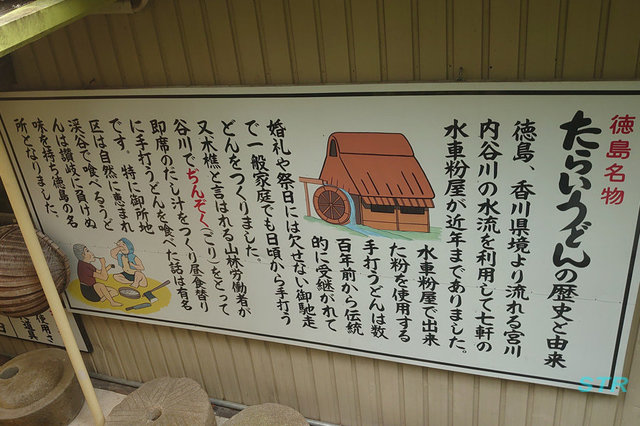 徳島名物
たらいうどんの歴史と由来
徳島 香川県境より流れる宮川
内谷川の水流を利用して七軒の
水車粉屋が近年までありました。
水車粉屋で出来
た粉を使用する
手打うどんは数
百年前から伝統
的に受継がれて
婚礼や祭日には欠せない御馳走
で一般家庭でも日頃から手打う
どんをつくりました。
又木樵と言はれる山林労働者が
谷川でぢんぞく(ごり)をとって
即席のだし汁をつくり昼食替り
に手打うどんを喰べた話は有名
です。 特に御所地
区は自然に恵まれ
渓谷で喰べるうど
んは讃岐に負けぬ
味を持ち徳島の名
所となりました。
STR